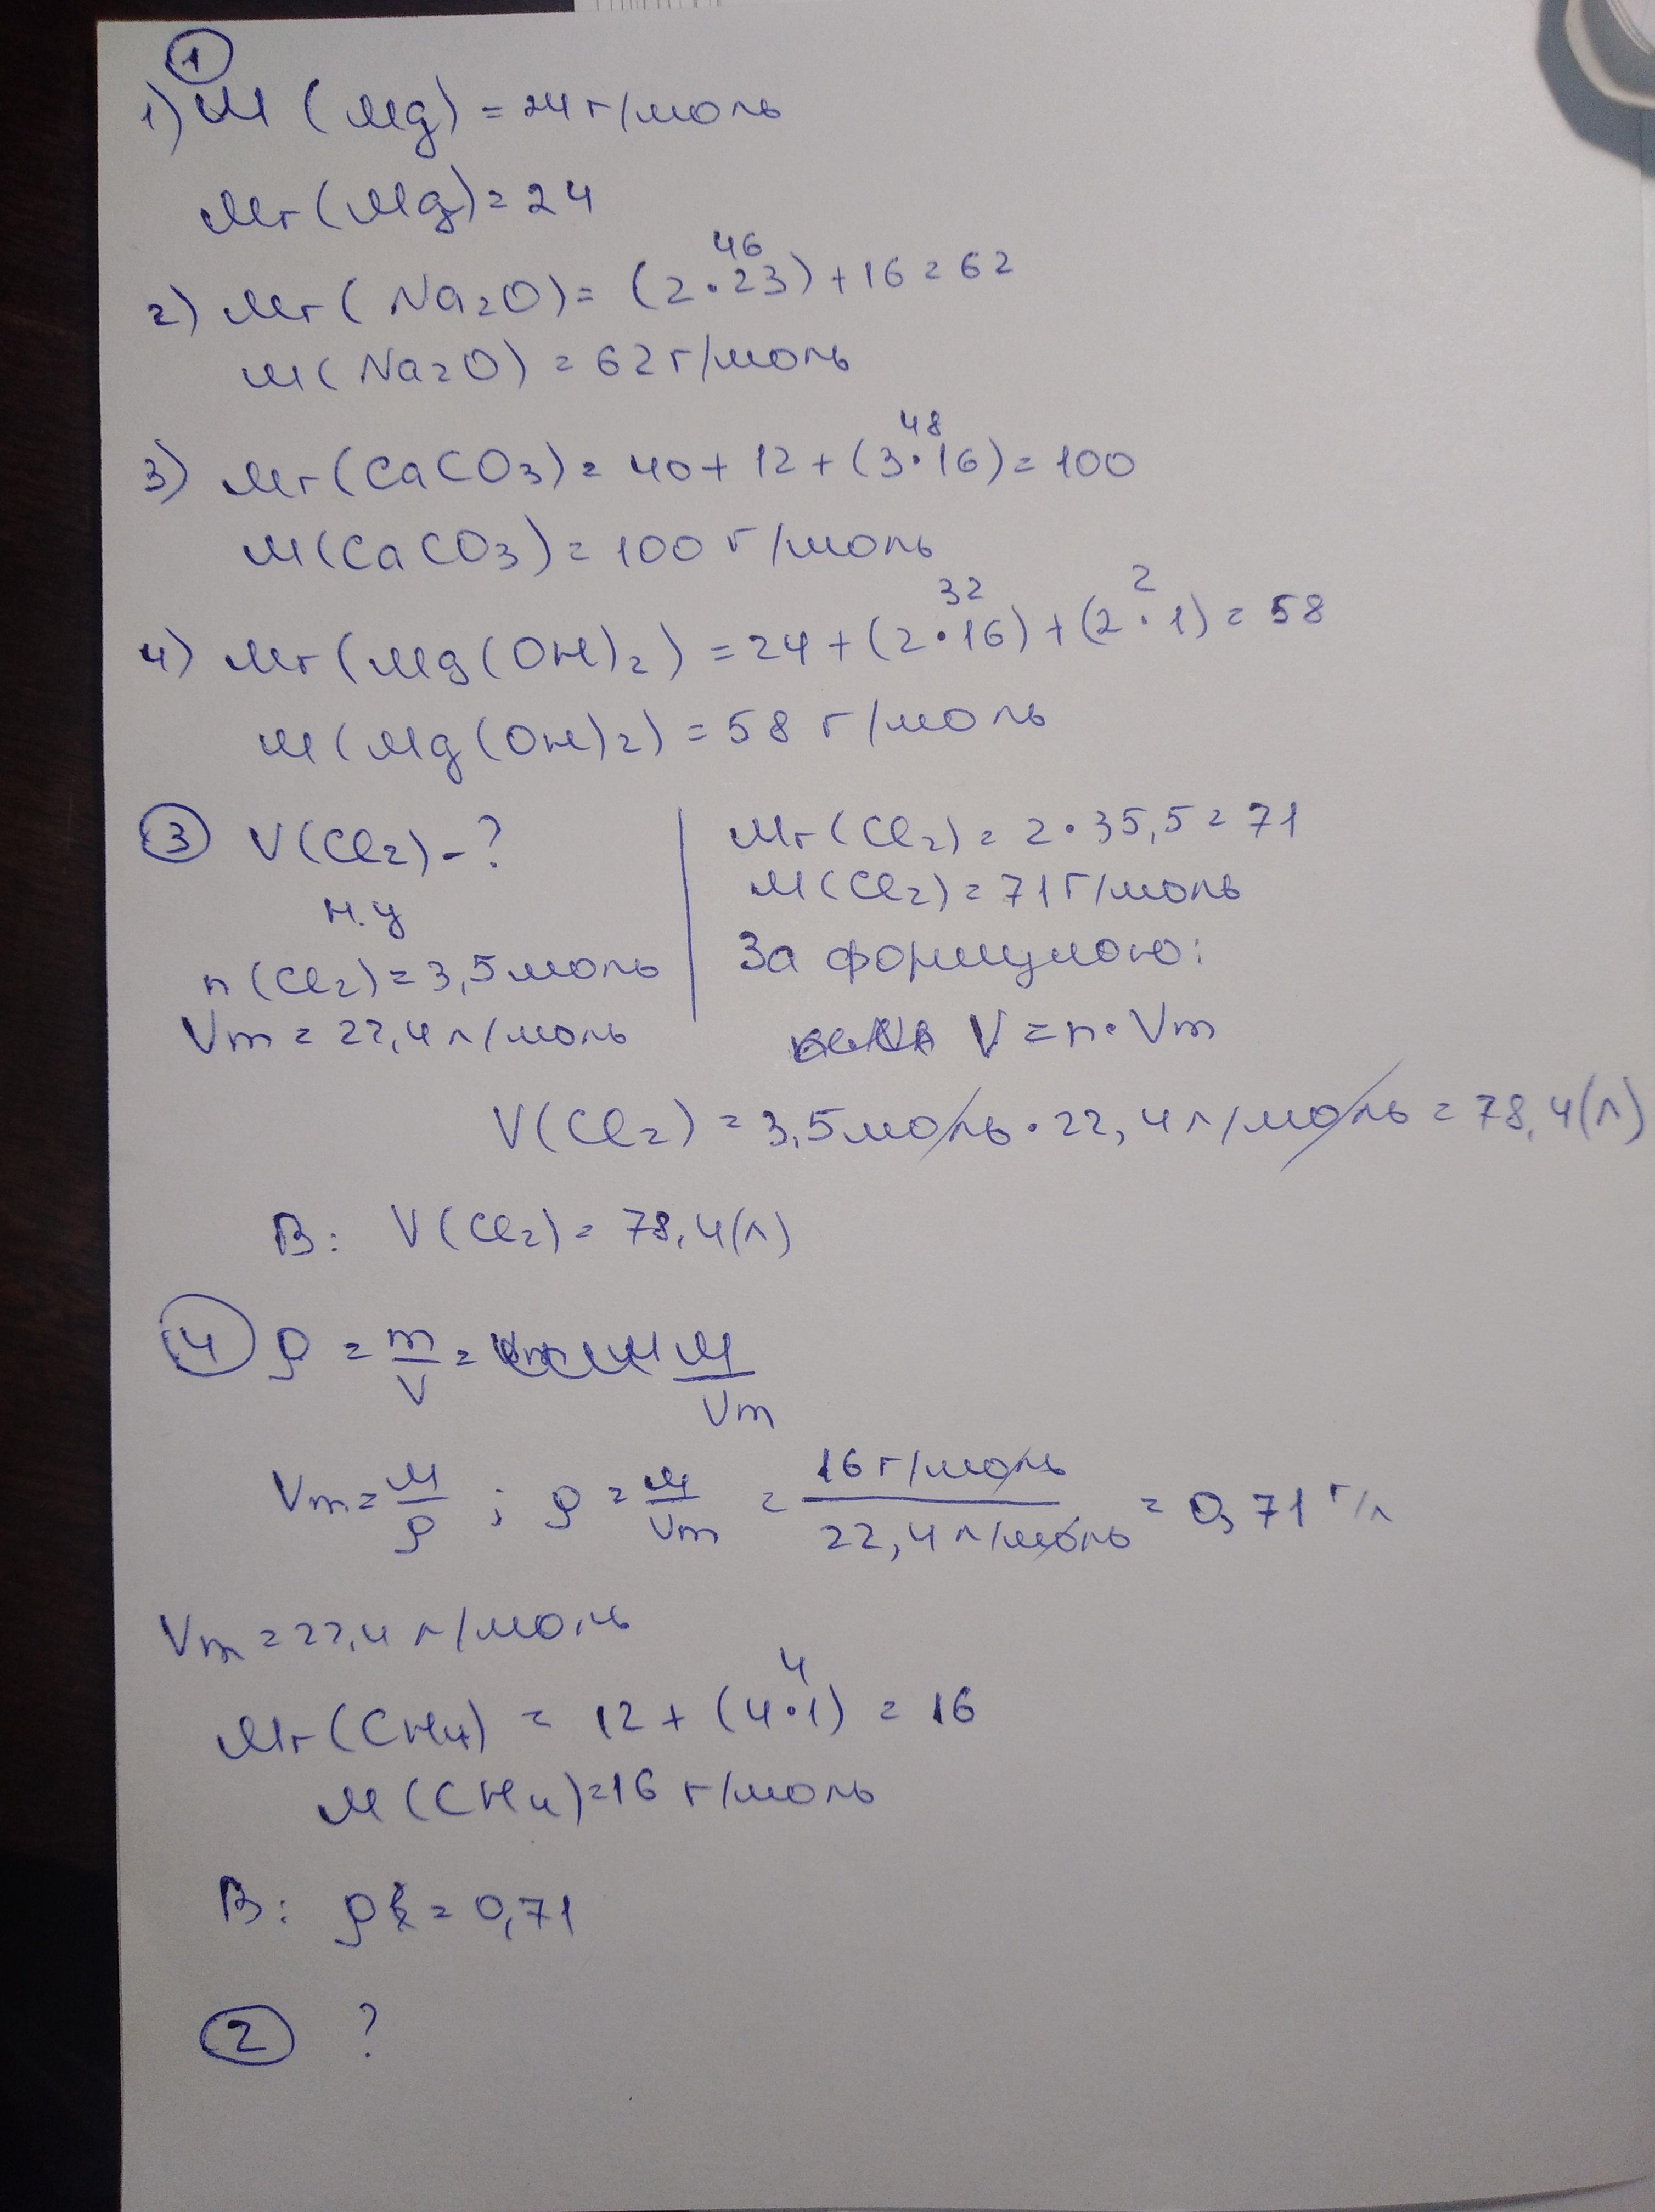 1
1) M (Mg) = 24 г/моль
Mr (Mg) = 24
46
2) Mr (Na2O) = (2·23) + 16 = 62
M (Na2O) = 62 г/моль
48
3) Mr (CaCO3) = 40 + 12 + (3·16) = 100
M (CaCO3) = 100 г/моль
32 2
4) Mr (Mg(OH)2) = 24 + (2·16) + (2·1) = 58
M (Mg(OH)2) = 58 г/моль
3 V(Cl2) - ?
н.у
n (Cl2) = 3,5 моль
Vm = 22,4 л/моль
Mr (Cl2) = 2·35,5 = 71
M (Cl2) = 71 г/моль
За формулою:
V = n·Vm
V(Cl2) = 3,5 моль·22,4 л/моль = 78,4 (л)
В: V(Cl2) = 78,4 (л)
4 ρ = m/V = M/Vm
Vm = M/ρ ; ρ = M/Vm = 16 г/моль / 22,4 л/моль = 0,71 г/л
Vm = 22,4 л/моль
4
Mr (CH4) = 12 + (4·1) = 16
M (CH4) = 16 г/моль
В: ρ = 0,71
2 ?